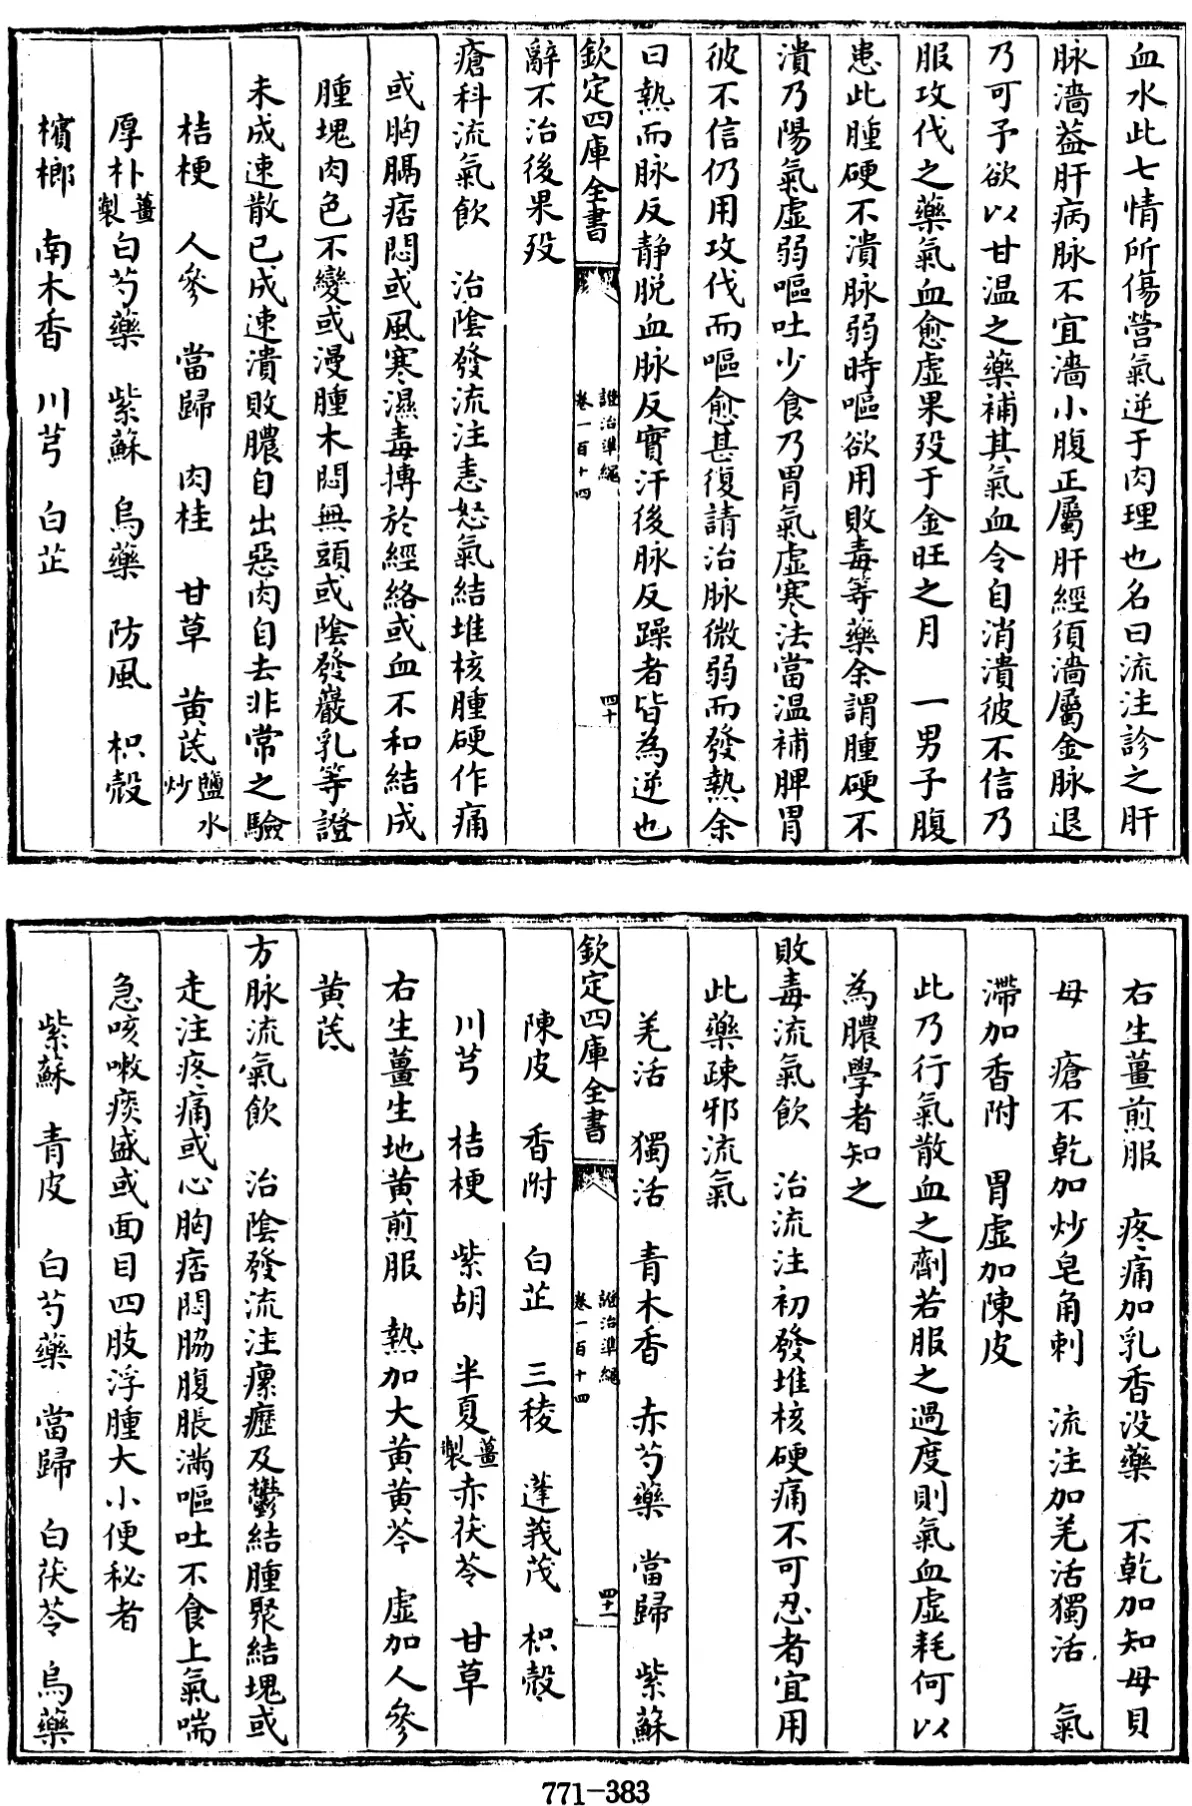 血水此七情所傷營氣逆于肉理也名曰流注診之肝
脉濇益肝病脉不宜濇小腹正屬肝經須濇屬金脉退
乃可予欲以甘温之藥補其氣血令自消潰彼不信乃
服攻伐之藥氣血愈虛果殁于金旺之月　一男子腹
患此腫硬不潰脉弱時嘔欲用敗毒等藥余謂腫硬不
潰乃陽氣虛弱嘔吐少食乃胃氣虛寒法當温補脾胃
彼不信仍用攻伐而嘔愈甚復請治脉微弱而發熱余
曰熱而脉反静脱血脉反實汗後脉反躁者皆為逆也
欽定四庫全書　證治準繩
卷一百十四　四十
辭不治後果殁
瘡科流氣飲　治陰發流注恚怒氣結堆核腫硬作痛
或胸膈痞悶或風寒濕毒摶於經絡或血不和結成
腫塊肉色不變或漫腫木悶無頭或陰發巖乳等證
未成速散已成速潰敗膿自出惡肉自去非常之驗
桔梗　人參　當歸　肉桂　甘草　黄茋鹽水炒
厚朴薑製　白芍藥　紫蘇　烏藥　防風　枳殻
檳榔　南木香　川芎　白芷
右生薑煎服　疼痛加乳香没藥　不乾加知母貝
母　瘡不乾加炒皂角刺　流注加羌活獨活　氣
滯加香附　胃虛加陳皮
此乃行氣散血之劑若服之過度則氣血虛耗何以
為膿學者知之
敗毒流氣飲　治流注初發堆核硬痛不可忍者宜用
此藥疎邪流氣
羌活　獨活　青木香　赤芍藥　當歸　紫蘇
欽定四庫全書　證治準繩
卷一百十四　四十一
陳皮　香附　白芷　三稜　蓬莪茂　枳殻
川芎　桔梗　紫胡　半夏薑製　赤茯苓　甘草
右生薑生地黄煎服　熱加大黄黄芩　虛加人參
黄茋
方脉流氣飲　治陰發流注瘰癧及鬱結腫聚結塊或
走注疼痛或心胸痞悶脇腹脹滿嘔吐不食上氣喘
急咳嗽痰盛或面目四肢浮腫大小便秘者
紫蘇　青皮　白芍藥　當歸　白茯苓　烏藥
771-383